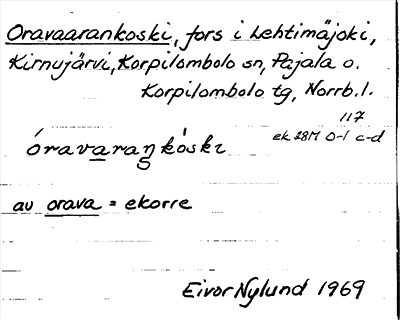 Oravaarankoski, fors i Lehtimäjoki,
Kirnujärvi, Korpilombolo sn, Pajala o.
Korpilombolo tg, Norrb. l.
117
ek 28M 0-1 c-d
óravaraŋkòski
av orava = ekorre
Eivor Nylund 1969